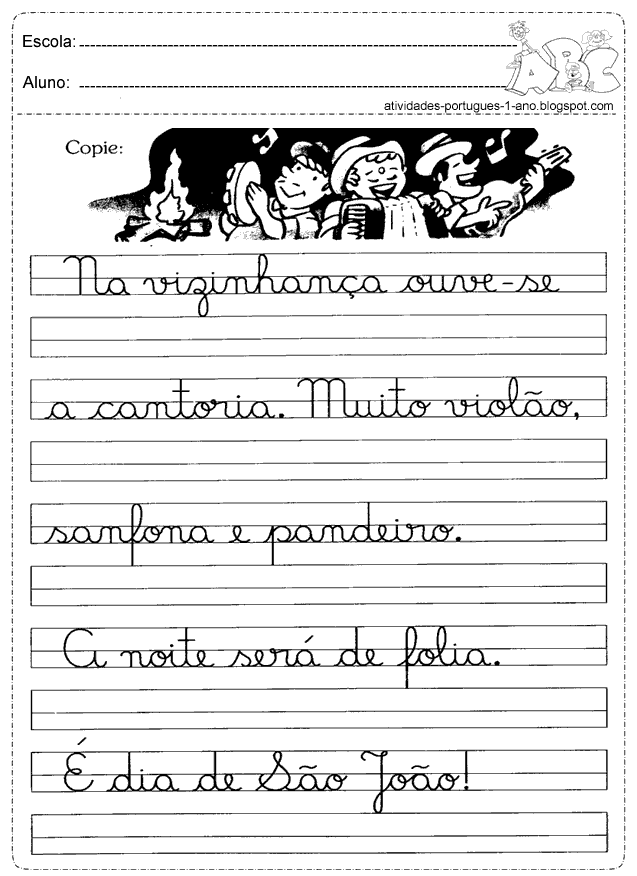 Escola:
Aluno:
ABC
atividades-portugues-1-ano.blogspot.com
Copie:
Na vizinhança ouve-se
a cantoria. Muito violão,
sanfona e pandeiro.
A noite será de folia.
É dia de São João!